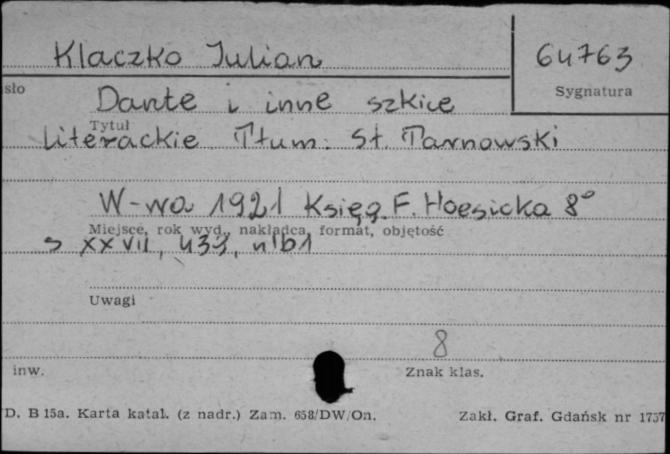 Klaczko Julian
64763
sło
Sygnatura
Dante i inne szkice
Tytuł
literackie. Tłum. St. Tarnowski
W-wa 1921 Księg. F. Hoesicka 8°
Miejsce, rok wyd., nakładca, format, objętość
s XXVII, 433, nlb1
Uwagi
8
inw.
Znak klas.
D. B 15a. Karta katal. (z nadr.) Zam. 658/DW/On.
Zakł. Graf. Gdańsk nr 1757